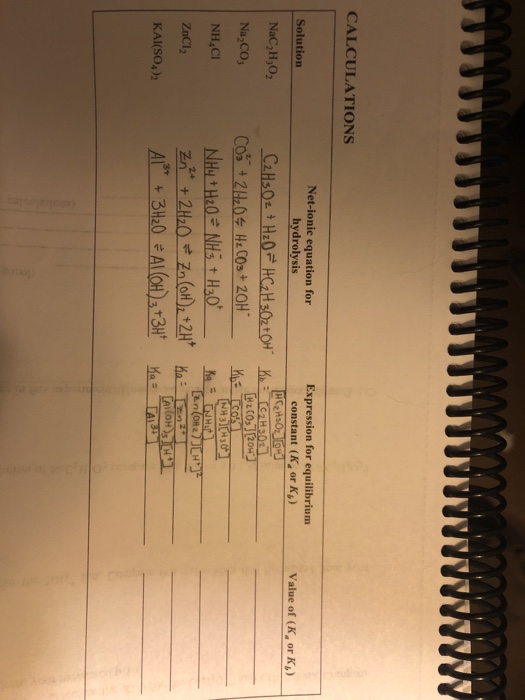 CALCULATIONS
Solution Net-ionic equation for hydrolysis Expression for equilibrium constant (Ka or Kb) Value of (Ka or Kb)
NaC2H3O2 C2H3O2 + H2O ⇌ HC2H3O2 + OH⁻ Kb = [HC2H3O2][OH⁻] / [C2H3O2]
Na2CO3 CO3²⁻ + 2H2O ⇌ H2CO3 + 2OH⁻ Kb = [H2CO3][2OH⁻] / [CO3]
NH4Cl NH4 + H2O ⇌ NH3 + H3O⁺ Ka = [NH3][H3O⁺] / [NH4⁺]
ZnCl2 Zn²⁺ + 2H2O ⇌ Zn(OH)2 + 2H⁺ Ka = [Zn(OH)2][H⁺]² / [Zn²⁺]
KAl(SO4)2 Al³⁺ + 3H2O ⇌ Al(OH)3 + 3H⁺ Ka = [Al(OH)3][H⁺] / [Al³⁺]